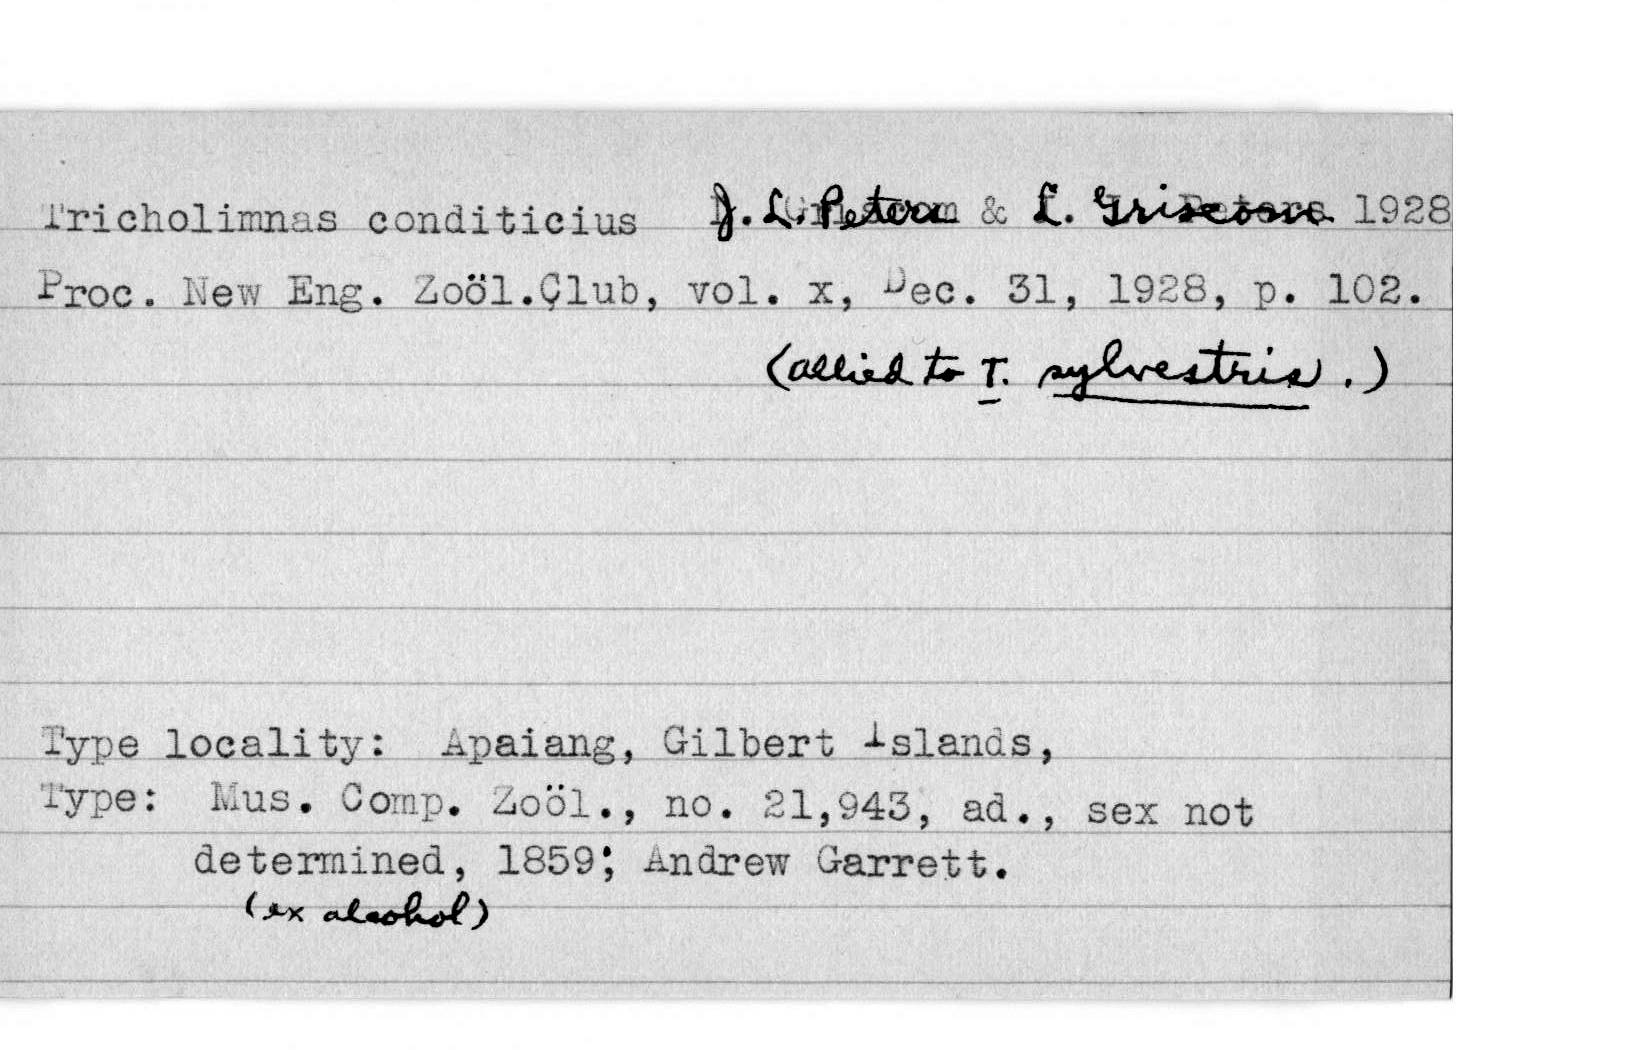 Tricholimnas conditicius J. L. Peters & L. Griscom 1928
Proc. New Eng. Zoöl.Club, vol. x, Dec. 31, 1928, p. 102.
(allied to T. sylvestris.)
Type locality: Apaiang, Gilbert Islands,
Type: Mus. Comp. Zoöl., no. 21,943, ad., sex not
determined, 1859; Andrew Garrett.
(ex alcohol)